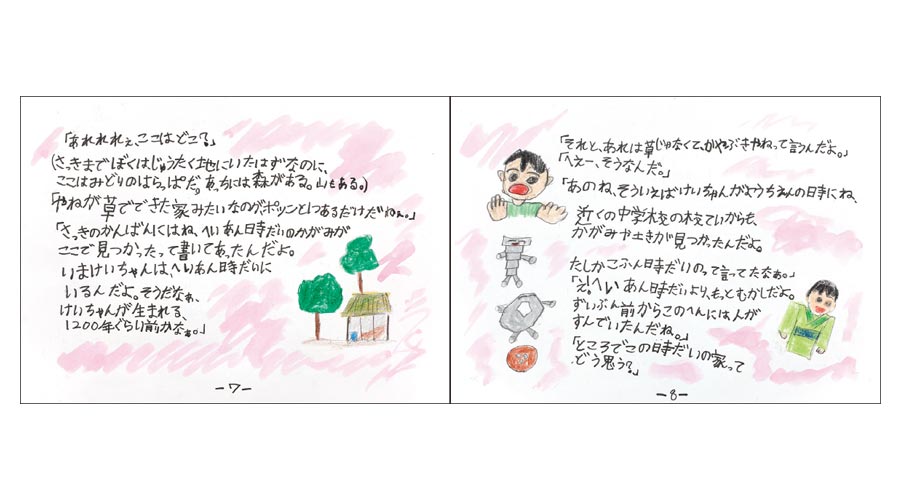 「あれれれぇ、ここはどこ?」
(さっきまでぼくはじゅうたく地にいたはずなのに、
ここはみどりのはらっぱだ。あっちには森がある。山もある。)
「やねが草でできた家みたいなのが、ポツンと1つあるだけだねぇ。」
「さっきのかんばんにはね、へいあん日時だいのかがみが
ここで見つかったって書いてあったんだよ。
いまけいちゃんは、へいあん時だいに
いるんだよ。そうだなぁ、
けいちゃんが生まれる、
1200年ぐらい前かなぁ。」
-7-
「それと、あれは草じゃなくて、かやぶきやねって言うんだよ。」
「へえー、そうなんだ。」
「あのね、そういえばけいちゃんがようちえんの時にね、
近くの中学校の校ていからも、
かがみや土きが見つかったんだよ。
たしかこふん時だいのって言ってたなぁ。」
「え!へいあん時だいより、もっとむかしだよ。
ずいぶん前からこのへんには人が
すんでいたんだね。」
「ところでこの時だいの家って
どう思う?」
-8-